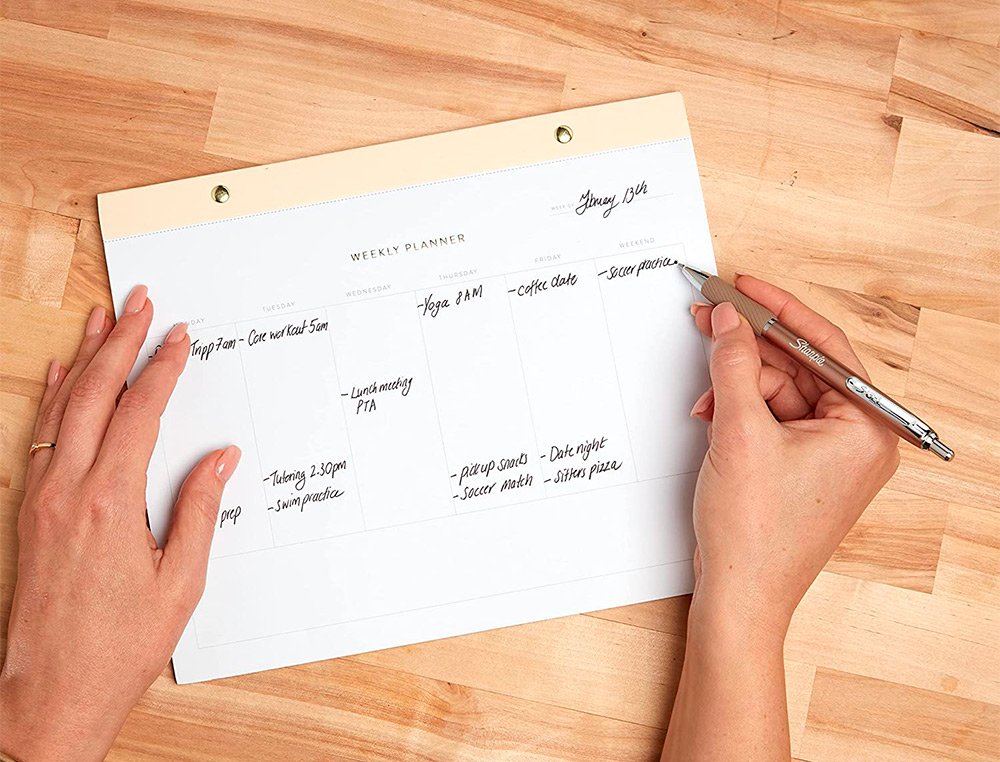 WEEK OF February 13th
WEEKLY PLANNER
TUESDAY
WEDNESDAY
THURSDAY
FRIDAY
WEEKEND
7am
- Core workout 5am
- Yoga 8 AM
- coffee date
- Soccer practice
- Lunch meeting
PTA
prep
- Tutoring 2.30pm
- swim practice
- pick up snacks
- Soccer match
- Date night
- Sitters pizza
Sharpie